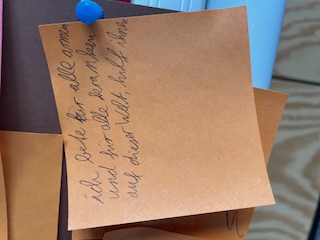 ich bete für alle armen
und für alle kranken
auf dieser Welt, hilf ihnen